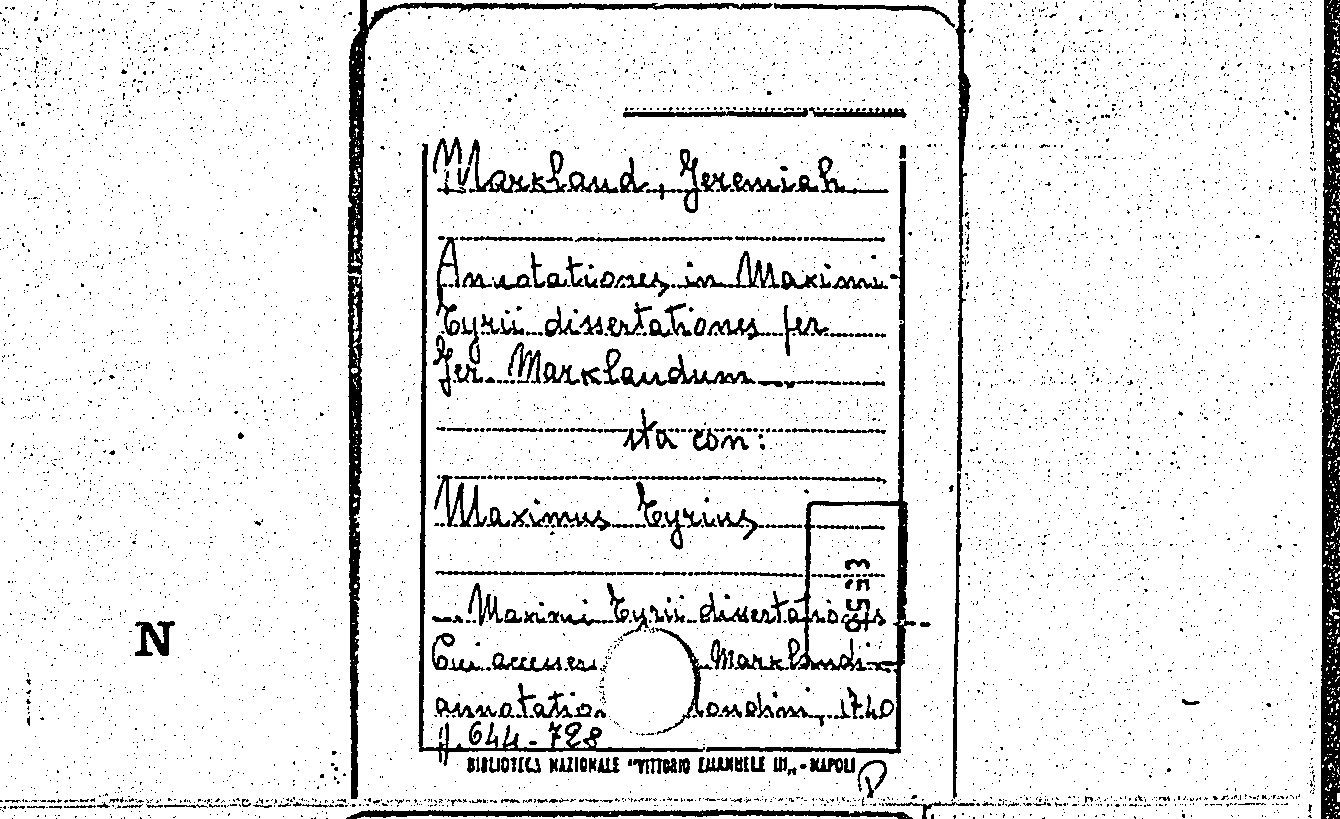 Markland, Jeremiah
Annotationes in Maximi
Tyrii dissertationes per
Jer. Marklandum
sta con:
Maximus Tyrius
Maximi Tyrii dissertationes
Cui accesser Marklandi
annotatio Londini, 1740
p. 644-728
BIBLIOTECA NAZIONALE "VITTORIO EMANUELE III„ - NAPOLI
N